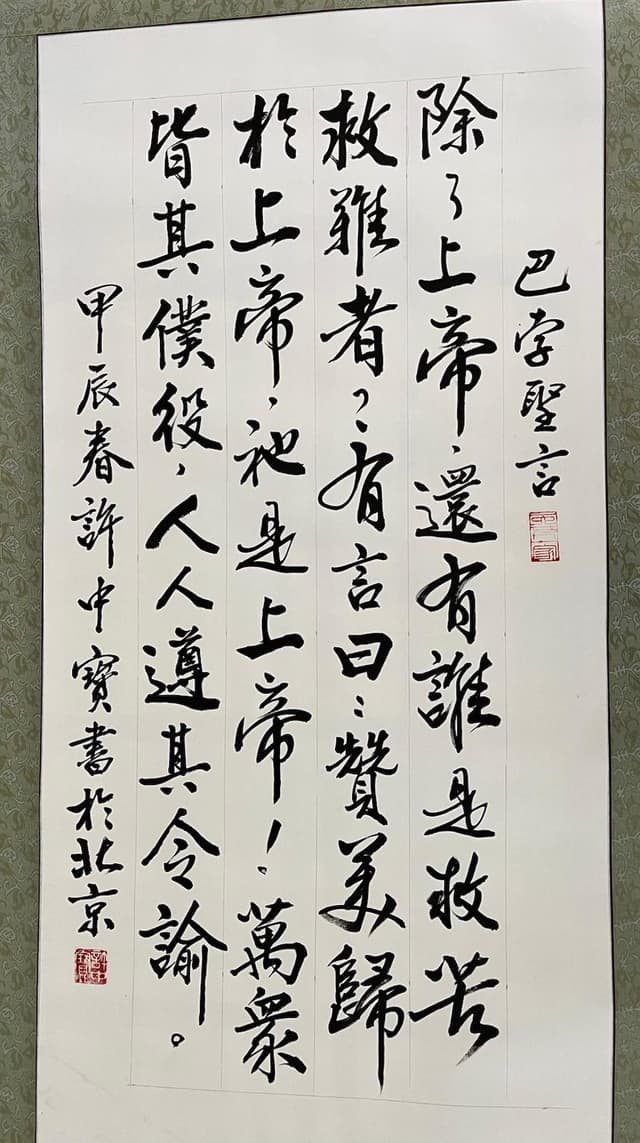 巴孛聖言
除了上帝，還有誰是救苦
救難者？有言曰：贊美歸
於上帝，祂是上帝！萬眾
皆其僕役，人人遵其令諭。
甲辰春許中寶書於北京